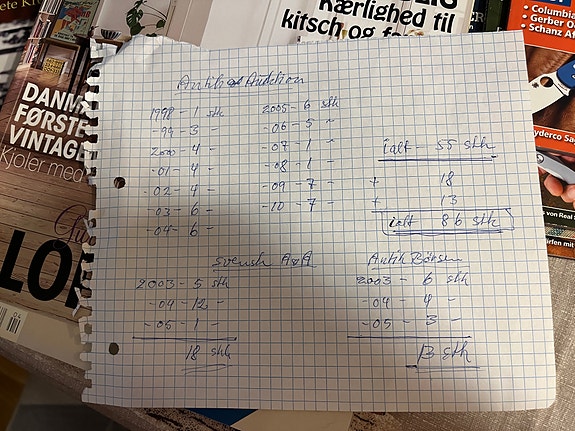 Kærlighed til
kitsch og
DANM
FØRSTE
VINTAG
Kjoler med
LO
• Columbia
• Gerber O
• Schanz A
yderco Sa
s von Real
Antik & Auktion
1998 - 1 stk
- 99 - 3 -
2000 - 4 -
- 01 - 4 -
- 02 - 4 -
- 03 - 6 -
- 04 - 6 -
2005 - 6 stk
- 06 - 5 -
- 07 - 1 -
- 08 - 1 -
- 09 - 7 -
- 10 - 7 -
ialt - 55 stk
+ 18
+ 13
ialt 86 stk
Svensk A&A
2003 - 5 stk
- 04 - 12 -
- 05 - 1 -
18 stk
Antik Börsen
2003 - 6 stk
- 04 - 4 -
- 05 - 3 -
13 stk